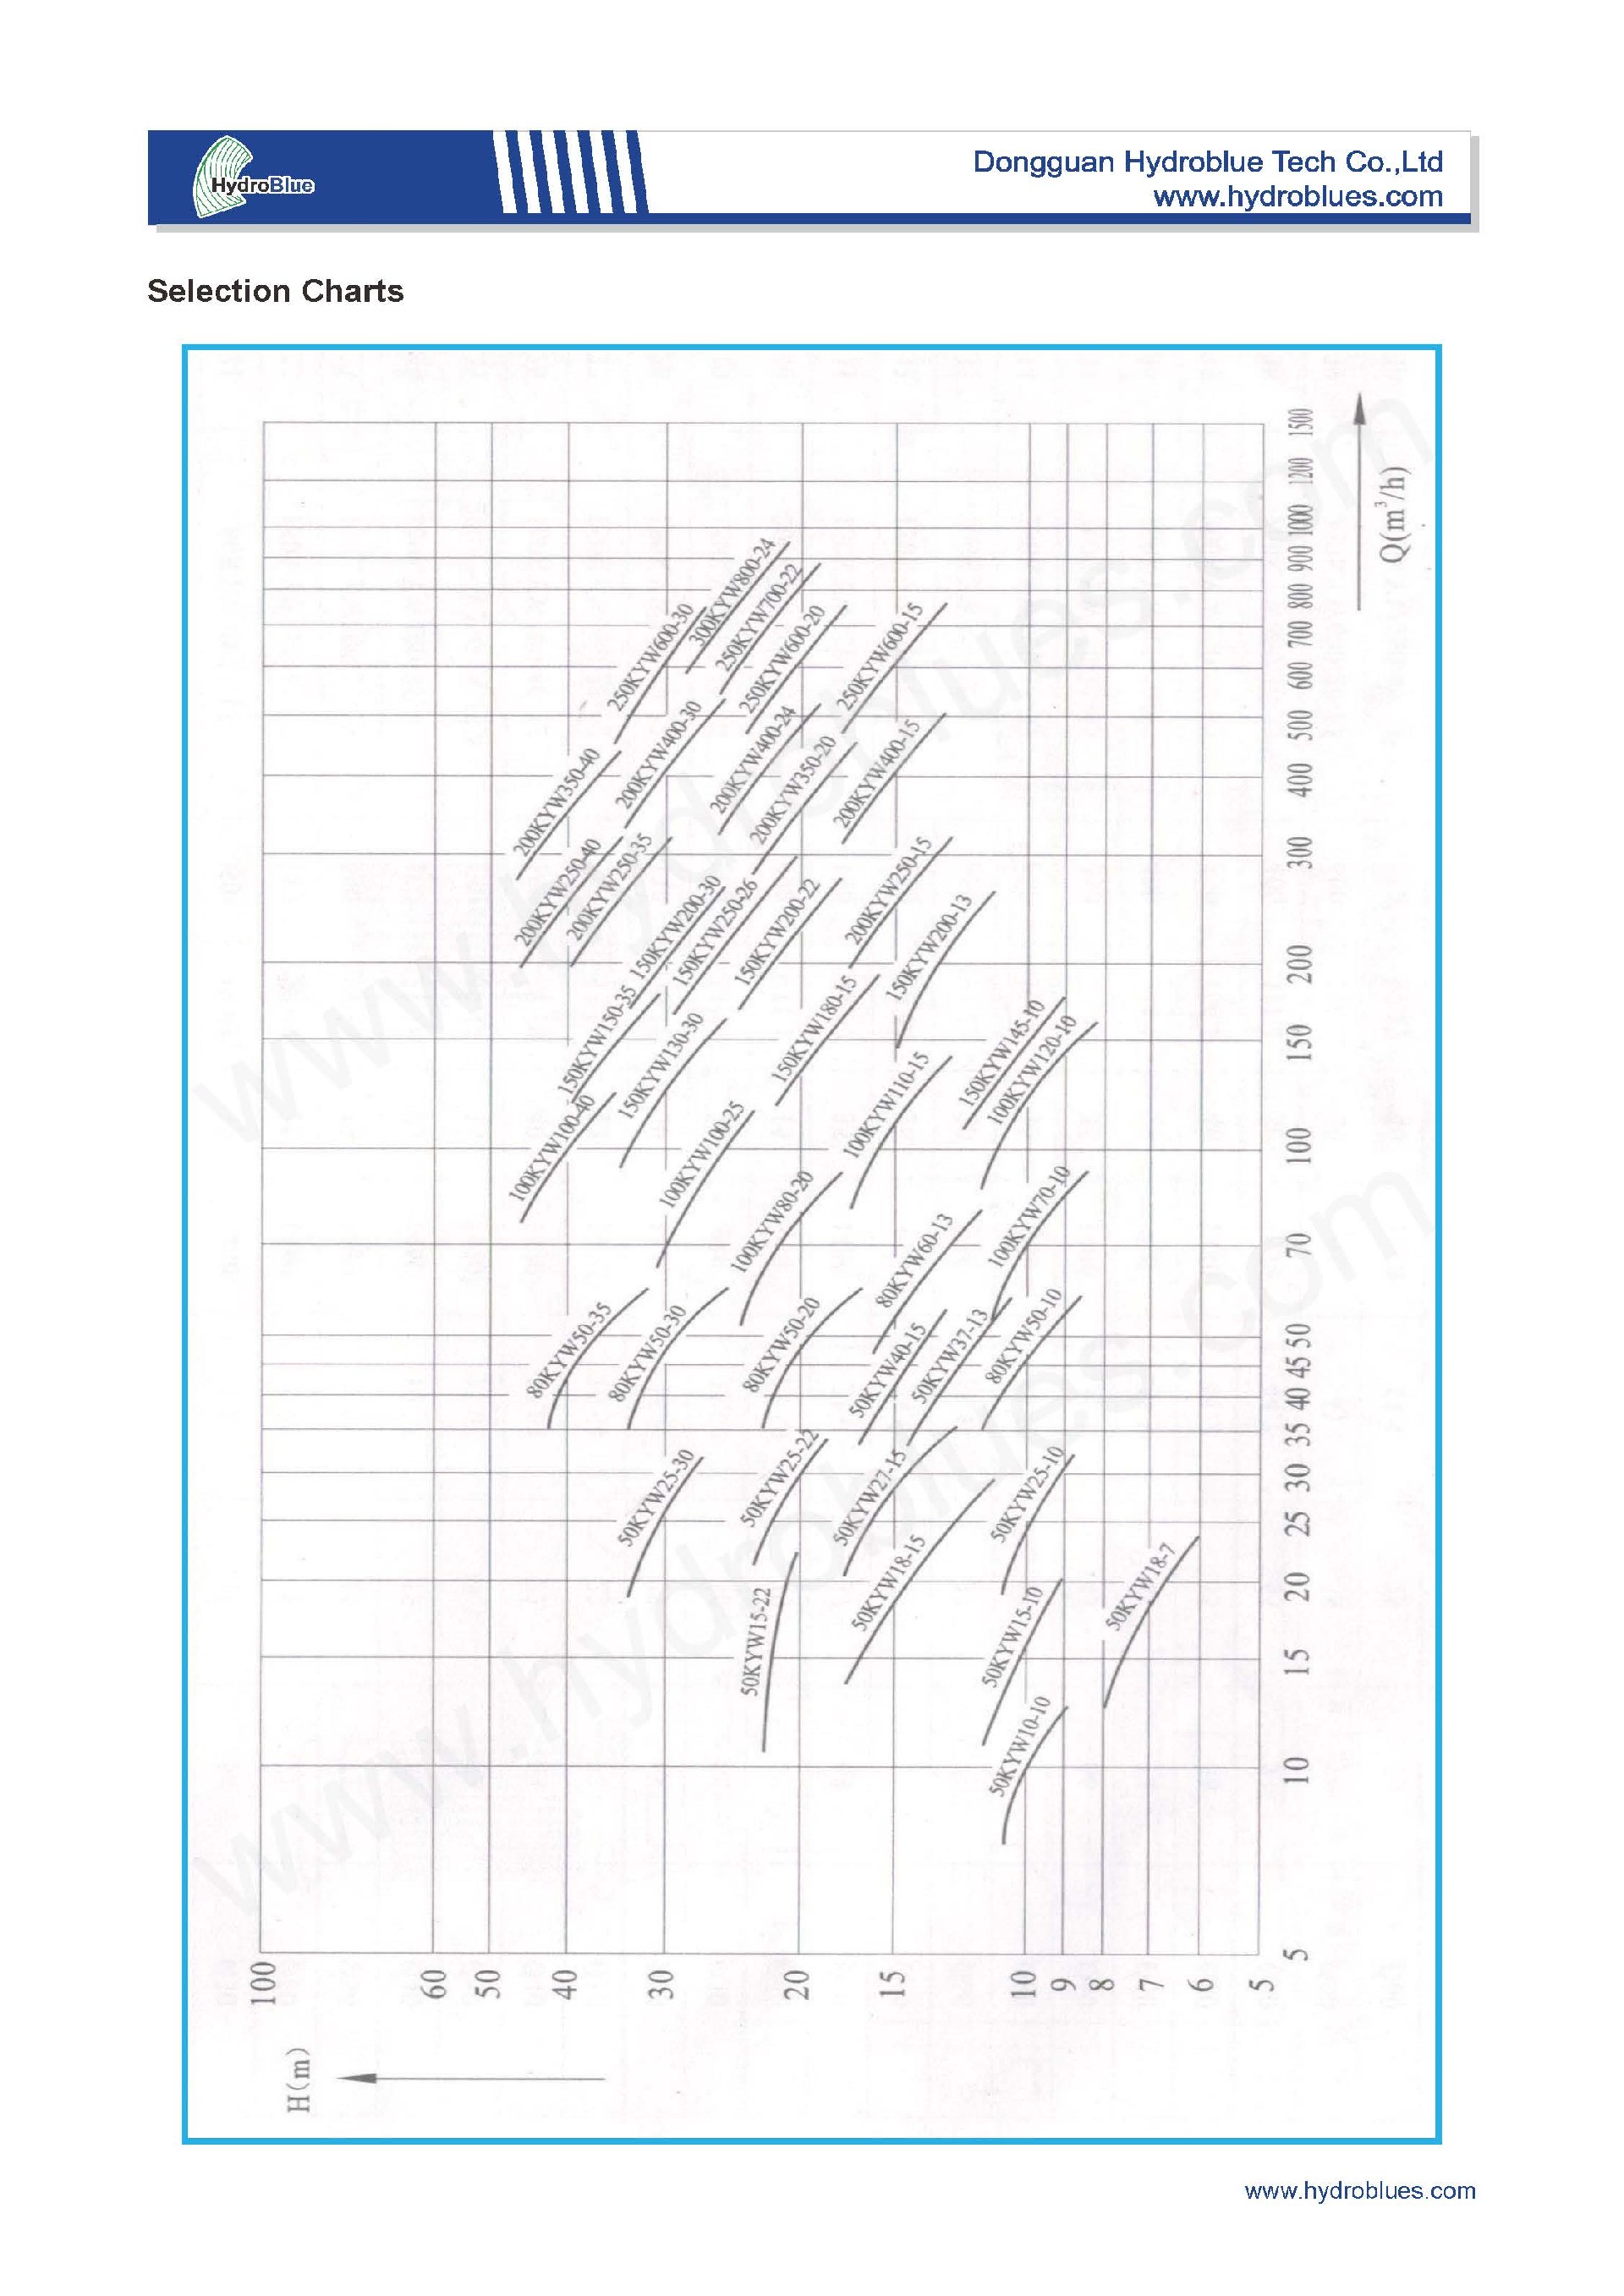 HydroBlue
Dongguan Hydroblue Tech Co.,Ltd
www.hydroblues.com
Selection Charts
H(m)
100
60
50
40
30
20
15
10
9
8
7
6
5
5
10
15
20
25
30
35
40
45
50
70
100
150
200
300
400
500
600
700
800
900
1000
1200
1500
Q(m³/h)
250KYW600-30
300KYW800-24
250KYW700-22
250KYW600-20
250KYW600-15
200KYW350-40
200KYW400-30
200KYW400-24
200KYW350-20
200KYW400-15
200KYW250-40
200KYW250-35
150KYW200-30
150KYW250-26
150KYW200-22
200KYW250-15
150KYW200-13
150KYW150-35
150KYW130-30
150KYW180-15
150KYW145-10
100KYW120-10
100KYW100-40
100KYW100-25
100KYW110-15
100KYW80-20
80KYW60-13
100KYW70-10
80KYW50-35
80KYW50-30
80KYW50-20
50KYW40-15
50KYW37-13
80KYW50-10
50KYW25-30
50KYW25-22
50KYW27-15
50KYW25-10
50KYW15-22
50KYW18-15
50KYW15-10
50KYW18-7
50KYW10-10
www.hydroblues.com
www.hydroblues.com
www.hydroblues.com